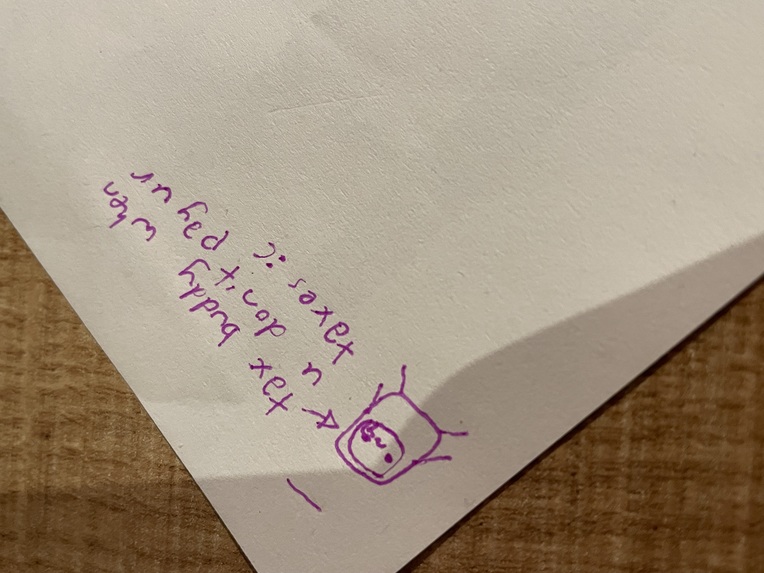 tax buddy when
u don't pay ur
taxes :c